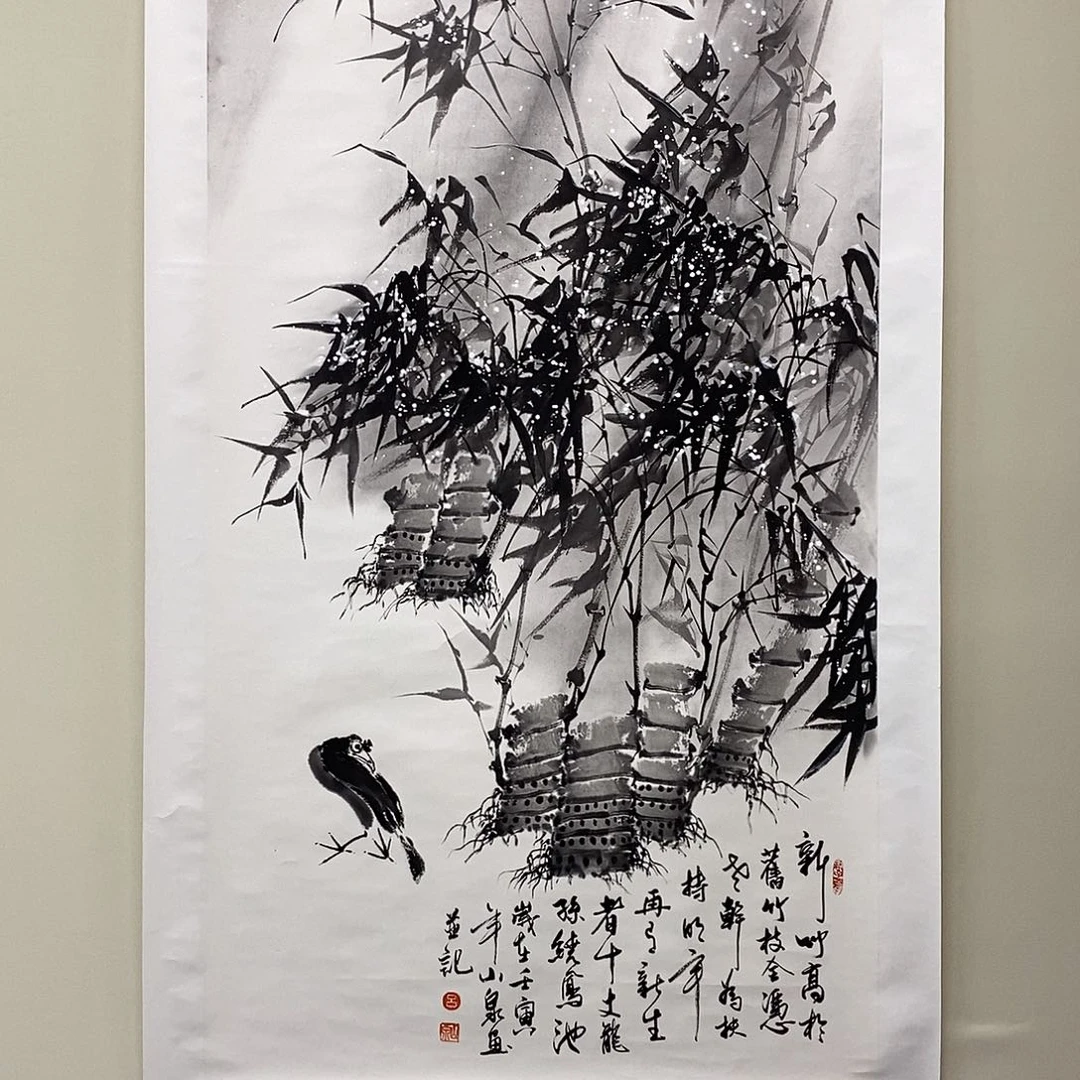 新竹高於
舊竹枝全憑
老幹為扶
持明年
再有新生
者十丈龍
孫繞鳳池
歲在壬寅
年小泉画
並記